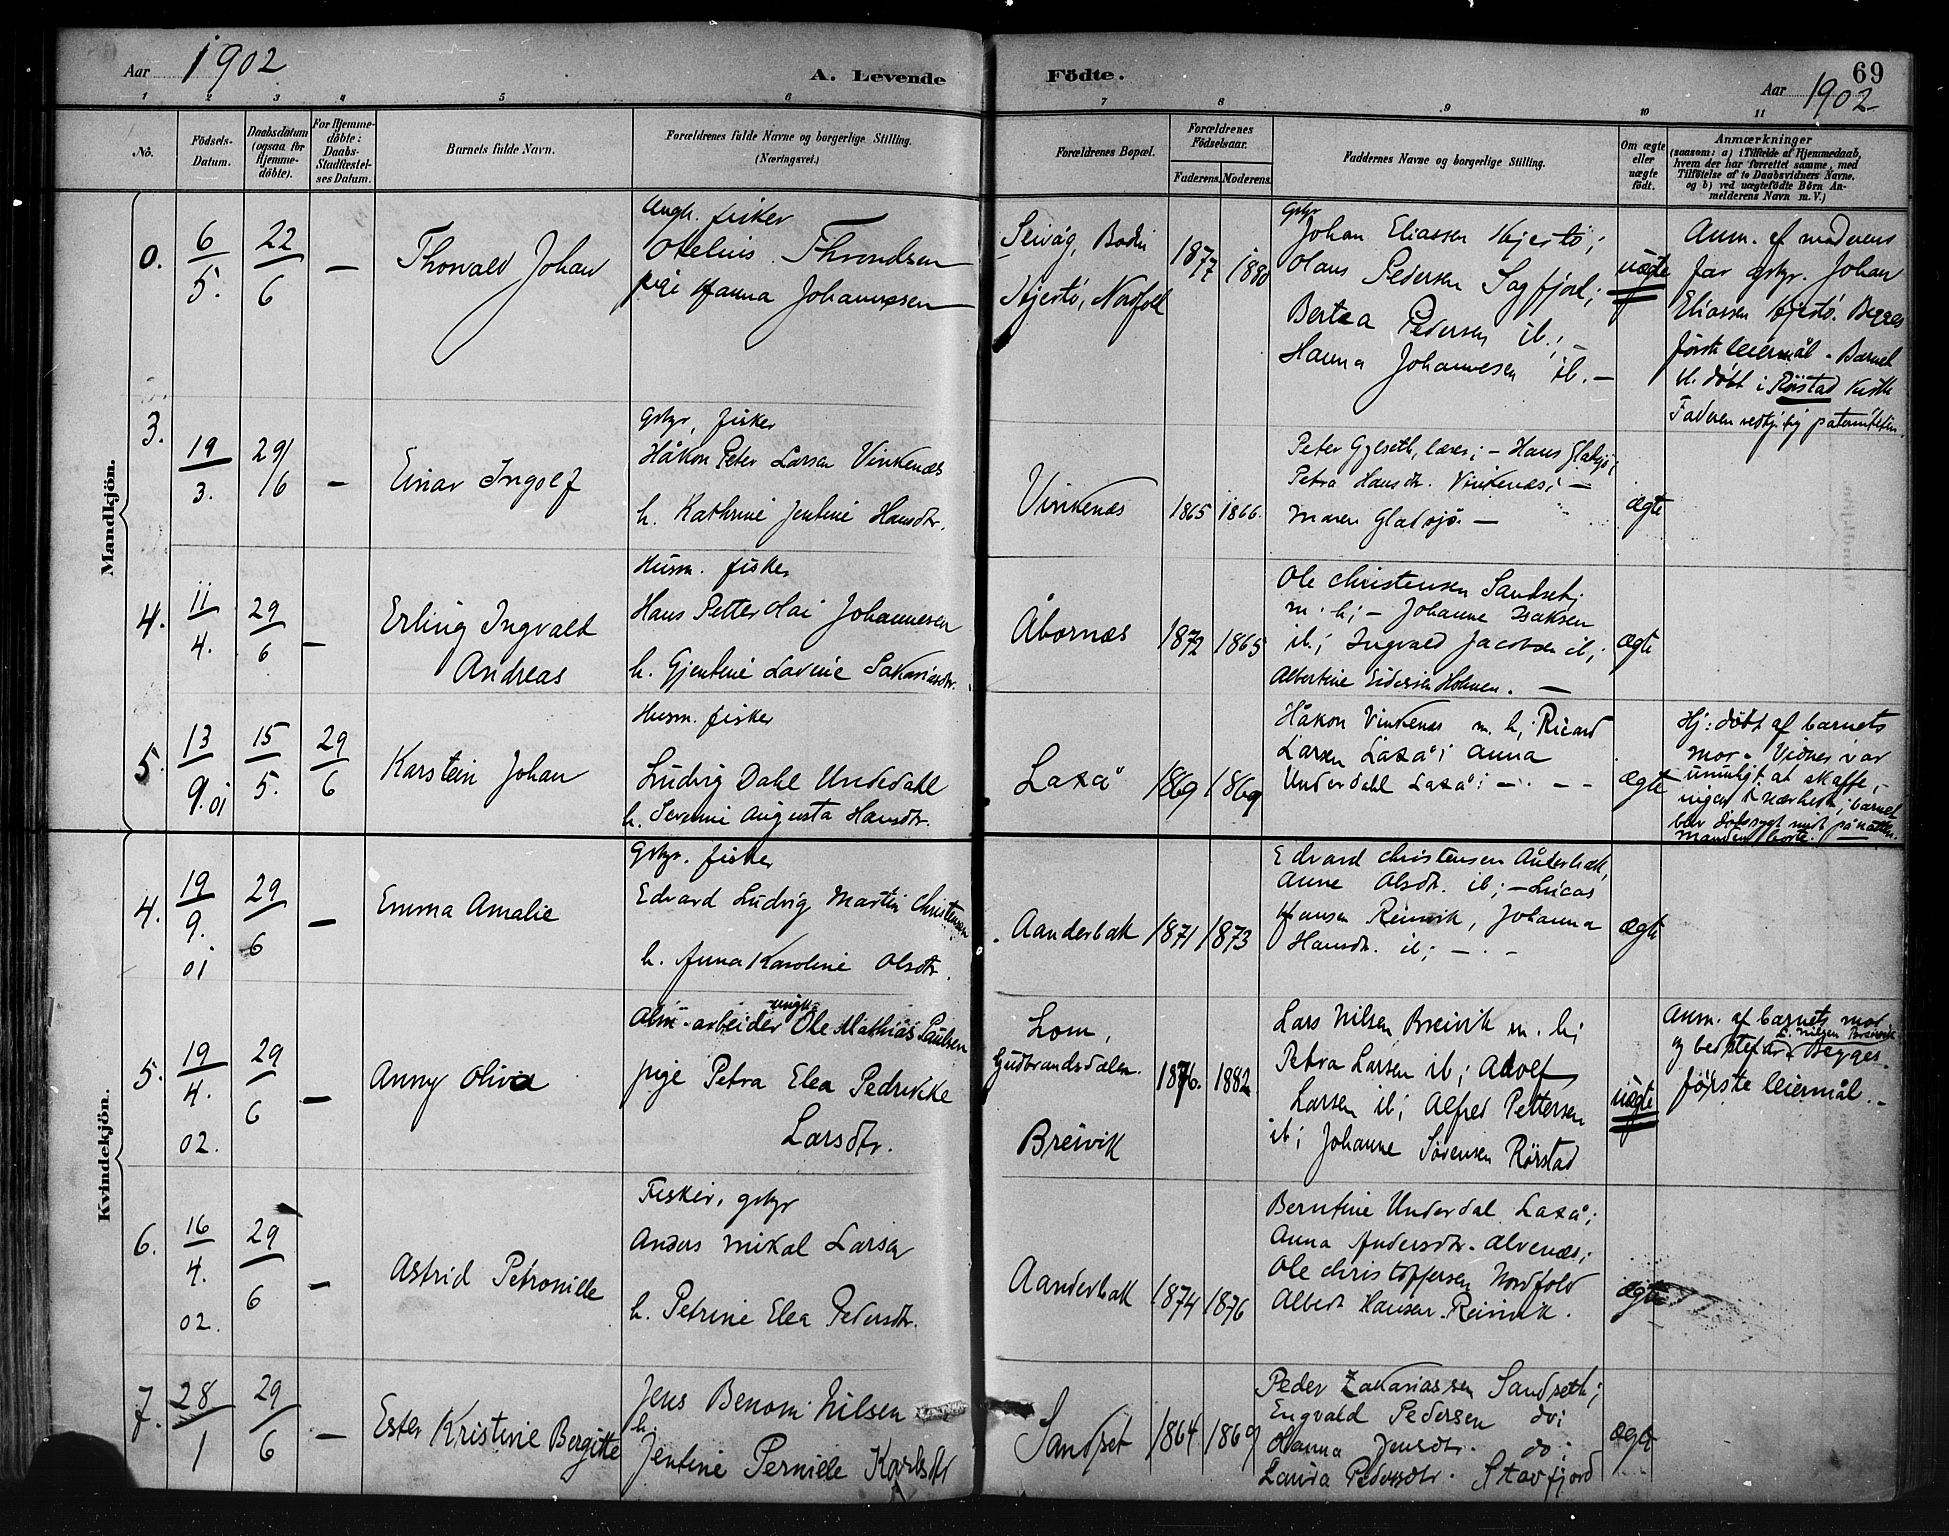 Aar 1902
A. Levende
Födte.
69
Aar 1902
1 2 3 4 5 6 7 8 9 10 11
No.
Födsels-
Datum.
Daabsdatum
(ogsaa for
Hjemme-
döbte).
For Hjemme-
döbte:
Daabs-
Stadfæstel-
ses Datum.
Barnets fulde Navn.
Forældrenes fulde Navne og borgerlige Stilling.
(Næringsvei.)
Forældrenes Bopæl.
Forældrenes
Födselsaar.
Faderens. Moderens.
Faddernes Navne og borgerlige Stilling.
Om ægte
eller
uægte
födt.
Anmærkninger
(saasom: a) i Tilfælde af Hjemmedaab,
hvem der har forrettet samme, med
Tilföielse af to Daabsvidners Navne,
og b) ved uægtefödte Börn An-
melderens Navn m. V.)
Mandkjön.
0. 6/5. 22/6 —
Thorvald Johan
Ungk. fisker
Otelius Throndsen
pige Hanna Johannessen
Seivåg, Bodin
Kjerstö, Nordfold
1877 1880
gbkr
Johan Eliassen Kjerstö;
Olaus Pedersen Sagfjord;
Bertea Pedersen ib.; —
Hanna Johannesen ib. —
uægte
Anm. af moderens
far gbkr. Johan
Eliassen Kjerstö. Begges
første leiermål. Barnet
bl. døbt i Rörstad Kirke
Faderen vedkj. sig paterniteten.
3. 19/3. 29/6 —
Einar Ingolf
Gbkr, fisker
Håkon Peter Larsen Vinkenæs
h. Kathrine Jentine Hansdtr.
Vinkenæs
1865 1866.
Peter Gylseth, lærer; — Hans Gladsjö;
Petra Hansdtr. Vinkenæs; —
Maren Gladsjö. —
ægte
4. 11/4. 29/6 —
Erling Ingvald
Andreas
Husm. fisker
Hans Petter Olai Johannesen
h. Gjentine Lavine Sakariasdtr.
Åbornæs
1872 1865
Ole Christensen Sandset;
m. h; — Johanne Isaksen
ib.; Ingvald Jacobsen ib.;
Albertine Eidersen Holmen. —
ægte
5. 13/9.01 15/5. 29/6
Karstein Johan
Husm. fisker
Ludvig Dahl Undedahl
h. Severine Augusta Hansdtr.
Laxå
1869 1869
Håkon Vinkenæs m. h; Ricard
Larsen Laxå; Anna
Underdahl Laxå; — . — -
ægte
Hj: døbt af barnets
mor. Vidnes var
umuligt at skaffe,
ingen i nærheden; barnet
blev dødssygt midt på natten.
Manden borte. —
Kvindekjön.
4. 19/9. 01 29/6 —
Emma Amalie
Gbkr. fisker
Edvard Ludvig Martin Christensen
h. Anna Karoline Olsdtr.
Aanderbak
1871 1873
Edvard Christensen Aanderbak,
Anne Olsdtr. ib; — Lucas
Hansen Reinvik, Johanna
Hansdtr. ib; — . -
ægte
5. 19/4. 02. 29/6 —
Anny Olivia
Alm. arbeider ungk. Ole Mathias Paulsen
pige Petra Elea Pedrikke
Larsdtr.
Lom,
Gudbrandsdalen.
Breivik
1876. 1882
Lars Nilsen Breivik m. h;
Petra Larsen ib; Adolf
Larsen ib; Alfred Pettersen
ib; Johanne Sørensen Rörstad
uægte
Anm. af barnets mor
og bedstefar L. Nilsen Breivik Begges
første leiermål. —
6. 16/4. 02. 29/6 —
Astrid Petronille
Fisker, gbkr
Anders Mikal Larsen
h. Petrine Elea Pedersdtr.
Aanderbak
1874 1876
Berntine Underdal Laxå;
Anna Andersdtr. Alvenæs;
Ole Christoffersen Nordfold
Albert Hansen Reinvik.
ægte
7. 28/1 29/6 —
Ester Kristine Bergitte
Jens Benoni Nilsen
h. Jentine Pernille Karlsdtr
Sandset
1864 1869
Peder Zakariassen Sandseth;
Engvald Pedersen do;
Hanna Jensdtr. do;
Laura Pedersdtr. Stavfjord
ægte